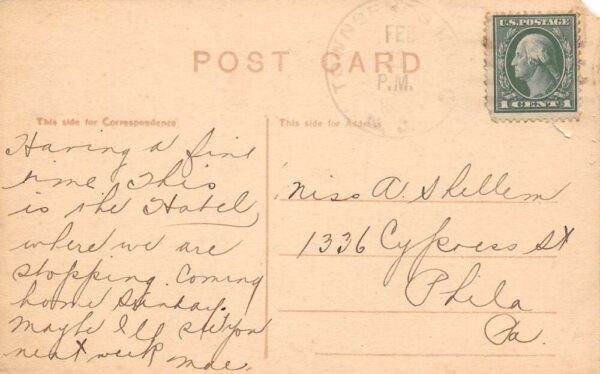 POST CARD
TOWNSENT
FEB
P.M.
N.J.
U.S. POSTAGE
1 CENT 1
This side for Correspondence
This side for Address
Having a fine
time This
is the Hotel
where we are
stopping. Coming
home Sunday.
Maybe I'll see you
next week Mae.
Miss A. Shellem
1336 Cypress St
Phila
Pa.